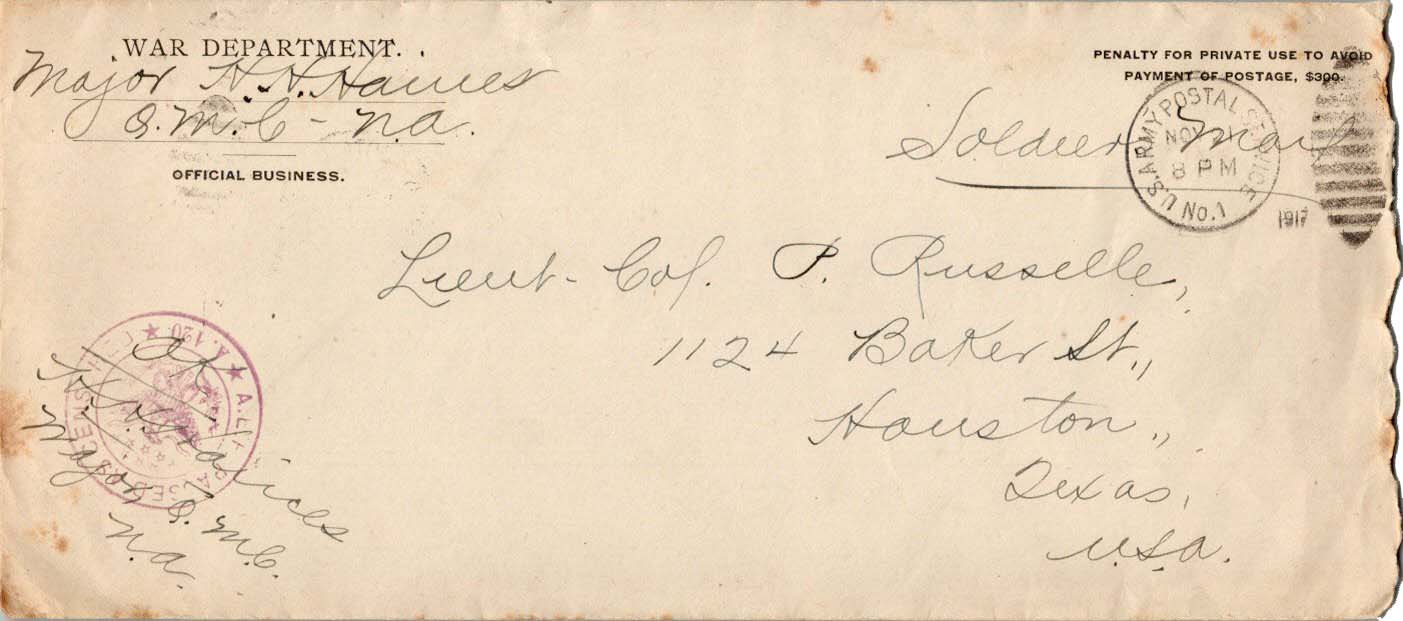 WAR DEPARTMENT.
Major H. H. Haines
Q.M.C - N.A.
OFFICIAL BUSINESS.
PENALTY FOR PRIVATE USE TO AVOID
PAYMENT OF POSTAGE, $300.
Soldier Mail
U.S. ARMY POSTAL SERVICE
NOV
8 PM
No. 1
1917
Lieut-Col. P. Russelle,
1124 Baker St.,
Houston,,
Texas,
U.S.A.
A.E.F. PASSED AS CENSORED
A. 120
OK
H. H. Haines
Major Q.M.C.
N.A.